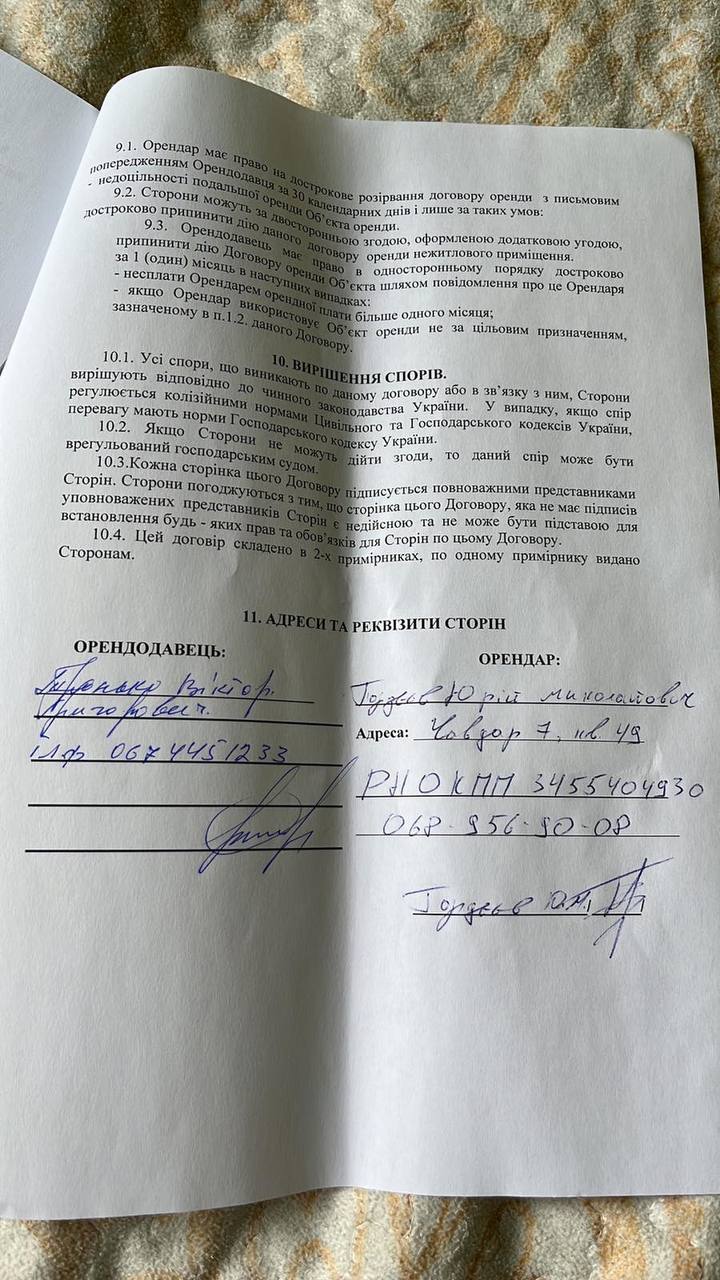 9.1. Орендар має право на дострокове розірвання договору оренди з письмовим
попередженням Орендодавця за 30 календарних днів і лише за таких умов:
- недоцільності подальшої оренди Об’єкта оренди.
9.2. Сторони можуть за двосторонньою згодою, оформленою додатковою угодою,
достроково припинити дію даного договору оренди нежитлового приміщення.
9.3. Орендодавець має право в односторонньому порядку достроково
припинити дію Договору оренди Об’єкта шляхом повідомлення про це Орендаря
за 1 (один) місяць в наступних випадках:
- несплати Орендарем орендної плати більше одного місяця;
- якщо Орендар використовує Об’єкт оренди не за цільовим призначенням,
зазначеному в п.1.2. даного Договору.
10. ВИРІШЕННЯ СПОРІВ.
10.1. Усі спори, що виникають по даному договору або в зв’язку з ним, Сторони
вирішують відповідно до чинного законодавства України. У випадку, якщо спір
регулюється колізійними нормами Цивільного та Господарського кодексів України,
перевагу мають норми Господарського кодексу України.
10.2. Якщо Сторони не можуть дійти згоди, то даний спір може бути
врегульований господарським судом.
10.3.Кожна сторінка цього Договору підписується повноважними представниками
Сторін. Сторони погоджуються з тим, що сторінка цього Договору, яка не має підписів
уповноважених представників Сторін є недійсною та не може бути підставою для
встановлення будь - яких прав та обов’язків для Сторін по цьому Договору.
10.4. Цей договір складено в 2-х примірниках, по одному примірнику видано
Сторонам.
11. АДРЕСИ ТА РЕКВІЗИТИ СТОРІН
ОРЕНДОДАВЕЦЬ:
Віктор
Григорович.
тлф 0674451233
ОРЕНДАР:
Гордєєв Юрій Миколайович
Адреса: Чавдар 7, кв 49
РНОКПП 3455404930
068-956-90-08
Гордєєв Ю.М.